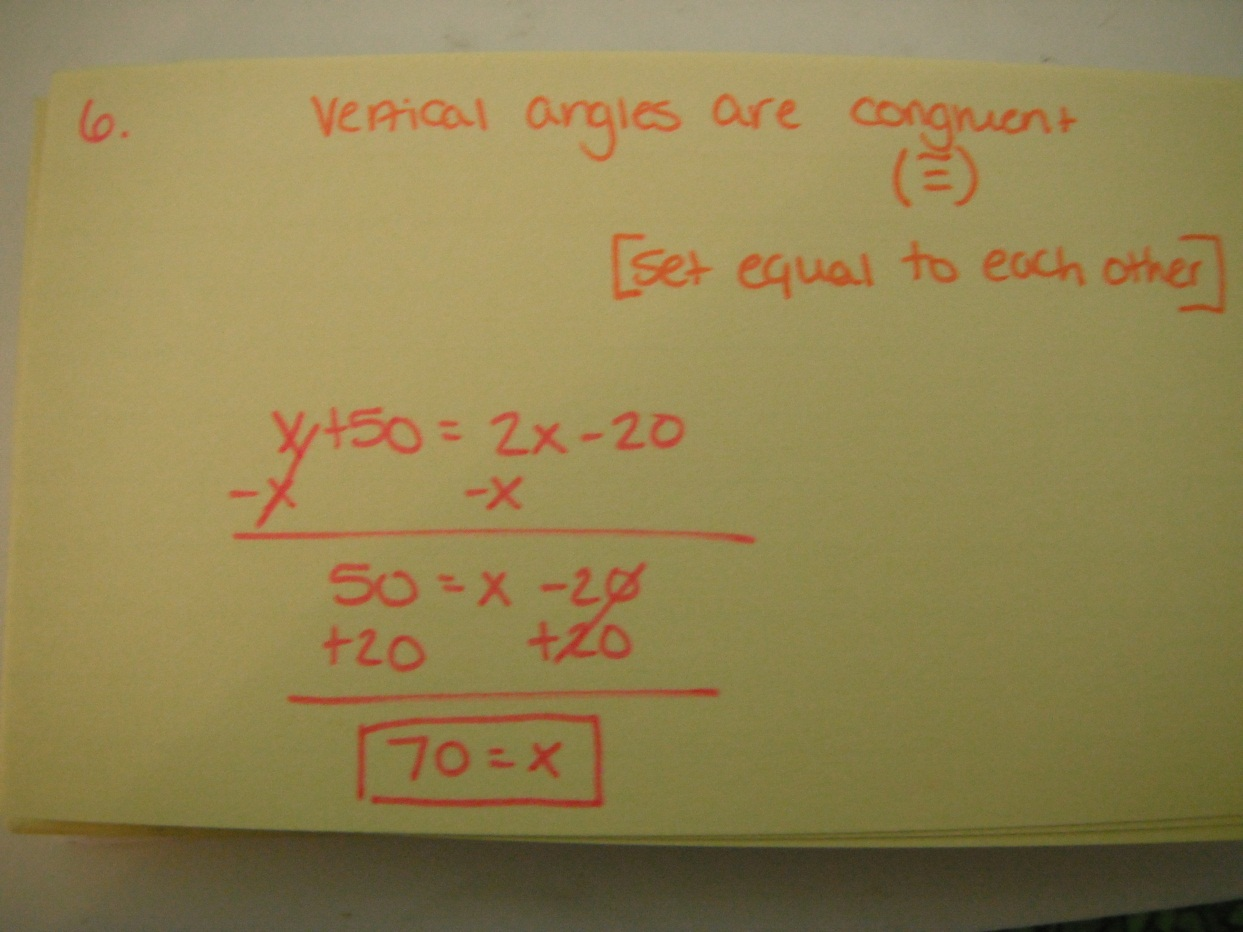 6. Vertical angles are congruent
(≅)
[set equal to each other]
x+50 = 2x-20
-x -x
50 = x -20
+20 +20
70 = x